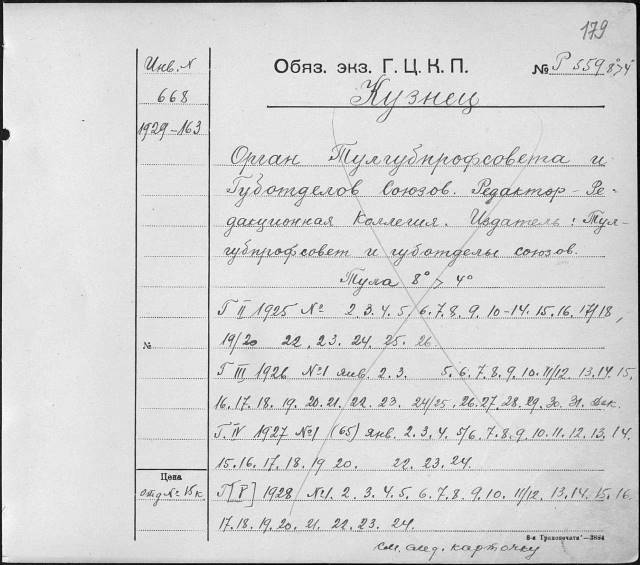 179
Инв. N
Обяз. экз. Г. Ц. К. П.
№ Р 559 8°>4°
668
Кузнец
1929–163
Орган Тулгубпрофсовета и
Губотделов Союзов. Редактор – Ре-
дакционная Коллегия. Издатель: Тул-
губпрофсовет и губотделы союзов.
Тула 8° > 4°
Г II 1925 № 2. 3. 4. 5. 6. 7. 8. 9. 10–14. 15. 16. 17/18,
№
19/20 22. 23. 24. 25. 26.
Г III 1926 №1 янв. 2. 3. 5. 6. 7. 8. 9. 10. 11/12. 13. 14. 15.
16. 17. 18. 19. 20. 21. 22. 23. 24/25. 26. 27. 28. 29. 30. 31. дек.
Г. IV 1927 №1 (65) янв. 2. 3. 4. 5/6. 7. 8. 9. 10. 11. 12. 13. 14.
15. 16. 17. 18. 19 20. 22. 23. 24.
Цена
отд № 15 к
Г [V] 1928 №1. 2. 3. 4. 5. 6. 7. 8. 9. 10. 11/12. 13. 14. 15. 16.
17. 18. 19. 20. 21. 22. 23. 24.
8-я Транспечати"—3884
См. след. карточку